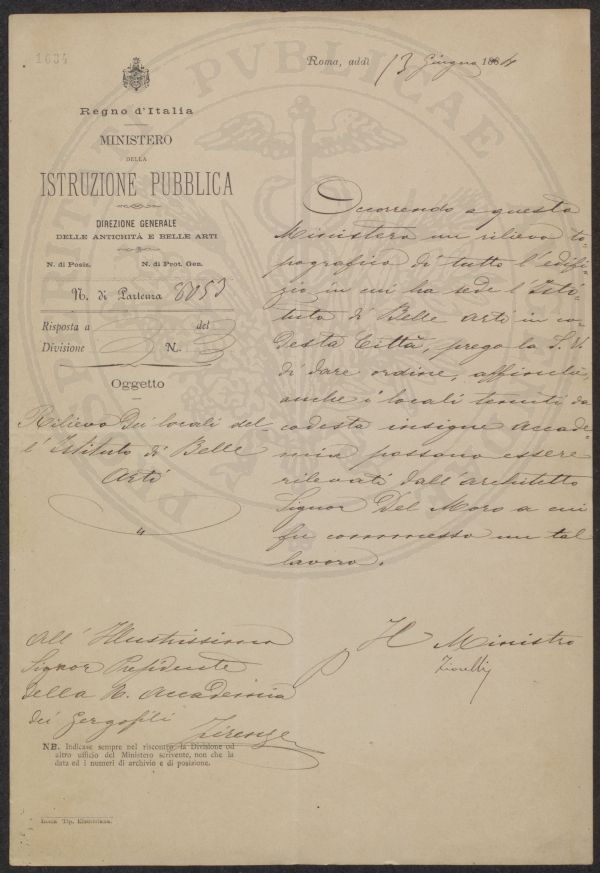 1634
Roma, addì 13 Giugno 1884
Regno d'Italia
MINISTERO
DELLA
ISTRUZIONE PUBBLICA
DIREZIONE GENERALE
DELLE ANTICHITÀ E BELLE ARTI
N. di Posiz. N. di Prot. Gen.
N. di Partenza 8053
Risposta a del
Divisione N.
Oggetto
Rilievo dei locali del-
l'Istituto di Belle
Arti
Occorrendo a questo
Ministero un rilievo to-
pografico di tutto l'edifi-
zio in cui ha sede l'Isti-
tuto di Belle Arti in co-
desta Città, prego la S. V.
di dare ordine, affinchè,
anche i locali tenuti da
codesta insigne Accade-
mia possano essere
rilevati dall'architetto
Signor Del Moro a cui
fu commesso un tal
lavoro.
Il Ministro
Fiorelli
All' Illustrissimo
Signor Presidente
della R. Accademia
dei Gergofili
Firenze
NB. Indicare sempre nel riscontro la Divisione od
altro ufficio del Ministero scrivente, non che la
data ed i numeri di archivio e di posizione.